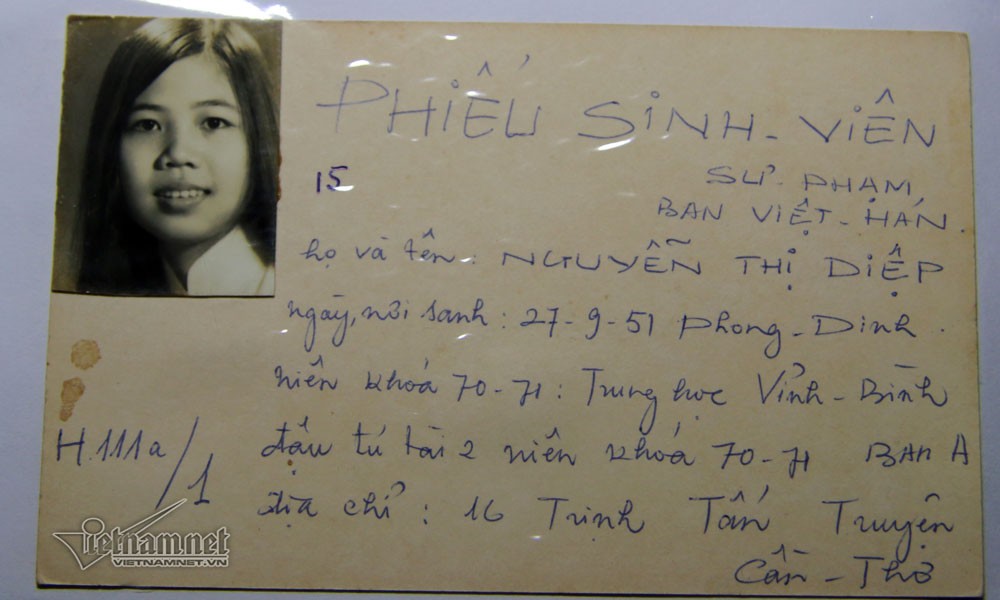 PHIẾU SINH-VIÊN
15
SƯ PHẠM
BAN VIỆT-HÁN.
họ và tên: NGUYỄN THỊ DIỆP
ngày, nơi sanh: 27-9-51 Phong-Dinh.
niên khoá 70-71: Trung học Vĩnh-Bình
đậu tú tài 2 niên khoá 70-71 BAN A
H.111a/1
địa chỉ: 16 Trịnh Tấn Truyện
Cần-Thơ
vietnam.net
VIETNAMNET.VN